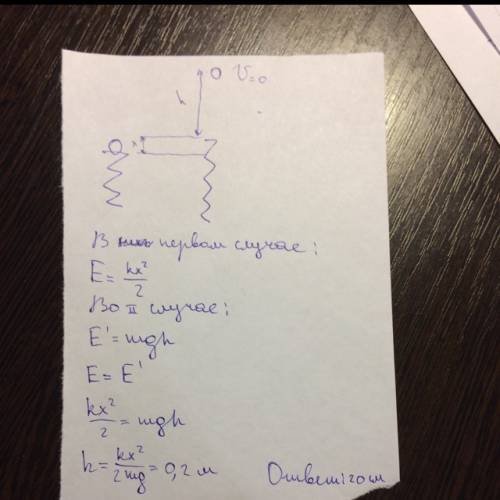 V=0
h
x
В первом случае:
E = kx²/2
Во II случае:
E' = mgh
E = E'
kx²/2 = mgh
h = kx²/2mg = 0,2 м
Ответ: 20 см